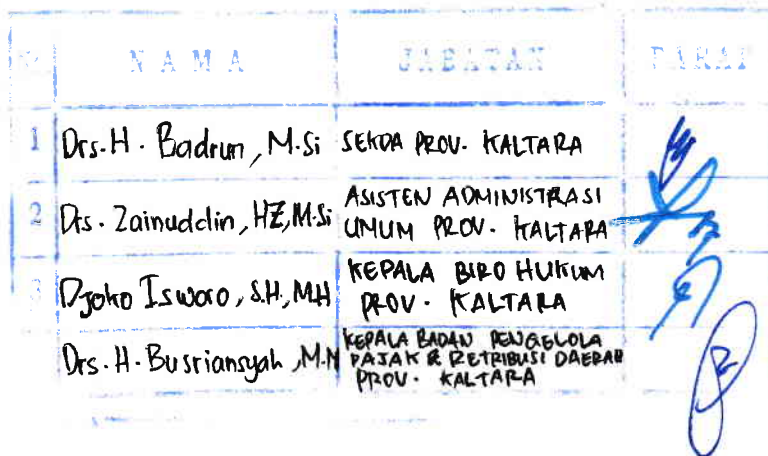 NAMA JABATAN PARAF
1 Drs. H. Badrun, M.Si SEKDA PROV. KALTARA
2 Drs. Zainuddin, HZ, M.Si ASISTEN ADMINISTRASI
UMUM PROV. KALTARA
3 Djoko Isworo, S.H., M.H KEPALA BIRO HUKUM
PROV. KALTARA
Drs. H. Busriansyah, M.M KEPALA BADAN PENGELOLA
PAJAK & RETRIBUSI DAERAH
PROV. KALTARA